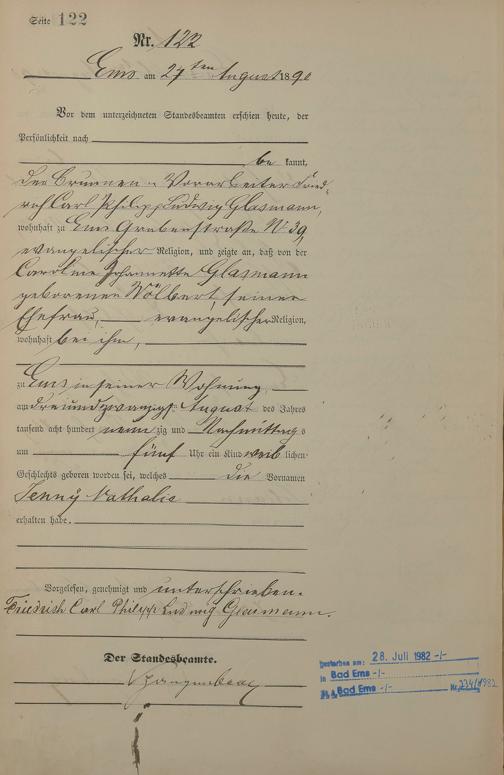 Seite 122
Nr. 122
Ems am 27ten August 1890
Vor dem unterzeichneten Standesbeamten erschien heute, der
Persönlichkeit nach
be kannt,
der Brunnen-Vorarbeiter Fried-
rich Carl Philipp Ludwig Glasmann,
wohnhaft zu Ems Grabenstraße No 39,
evangelischer Religion, und zeigte an, daß von der
Caroline Glasmann
geborenen Wölbert, seiner
Ehefrau, evangelischer Religion,
wohnhaft bei ihm,
zu Ems in seiner Wohnung,
am dreiundzwanzigsten August des Jahres
tausend acht hundert neunzig und Nachmittags
um fünf Uhr ein Kind weiblichen
Geschlechts geboren worden sei, welches die Vornamen
Jenny Nathalie
erhalten habe.
Vorgelesen, genehmigt und unterschrieben.
Friedrich Carl Philipp Ludwig Glasmann.
Der Standesbeamte.
gestorben am: 28. Juli 1982 -/-
in Bad Ems -/-
Bad Ems -/- Nr. 234/1982